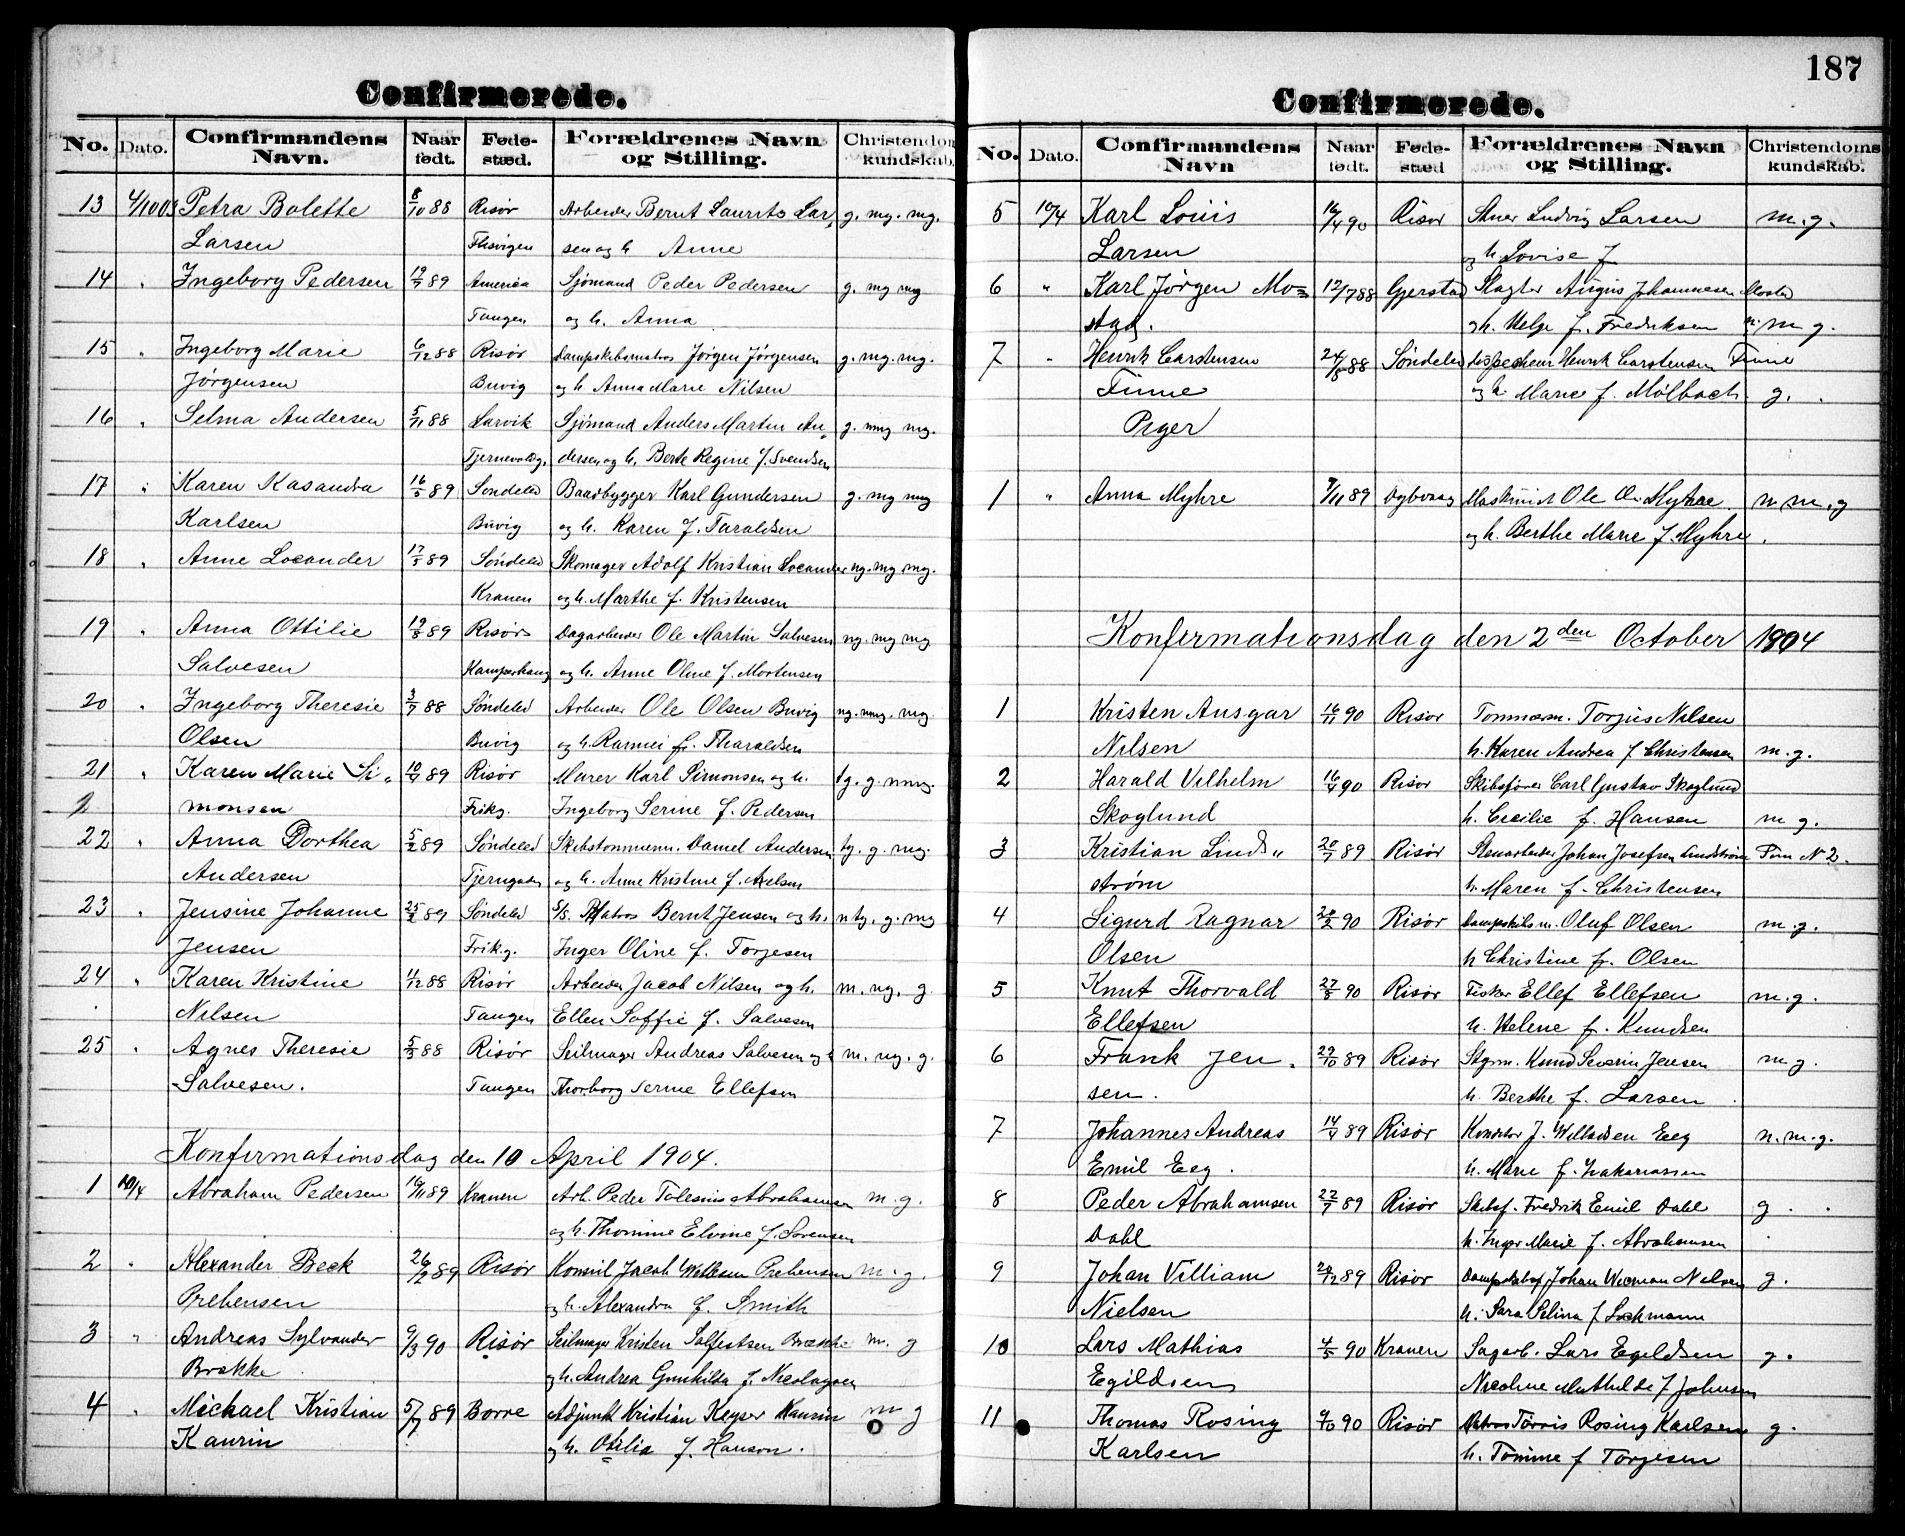 187
Confirmerede.
No. Dato. Confirmandens Navn. Naar født. Føde-stæd. Forældrenes Navn og Stilling. Christendoms kundskab.
13 4/10 03 Petra Bolette 8/10 88 Risör Arbeider Bernt Laurits Lar, g. mg. mg.
Larsen Flisvigen sen og h. Anne
14 " Ingeborg Pedersen 19/5 89 America Sjömand Peder Pedersen g. mg mg
Tangen og h. Anna
15 " Ingeborg Marie 6/12 88 Risör Dampskibsmatros Jörgen Jörgensen g. mg. mg.
Jørgensen Buvig og h. Anna Marie Nilsen
16 " Selma Andersen 5/11 88 Larvik Sjömand Anders Martin An, g. mg mg.
dersen og h. Berte Regine f. Svendsen
17 " Karen Kasandra 16/5 89 Söndeled Baadbygger Karl Gundersen g. mg mg
Karlsen Buvig og h. Karen f. Taraldsen
18 " Anne Locander 17/5 89 Söndeled Skomager Adolf Kristian Locander ng. mg mg.
Kranen og h. Marthe f. Kristensen
19 " Anna Ottilie 19/8 89 Risör Dagarbeider Ole Martin Salvesen ng. mg mg
Salvesen Kamperhaug og h. Anne Oline f. Mortensen
20 " Ingeborg Theresie 3/7 88 Söndeled Arbeider Ole Olsen Buvig ng. mg. mg
Olsen Buvig og h. Rannei f. Tharaldsen
21 " Karen Marie Si" 10/9 89 Risör Murer Karl Simonsen og h. tg. g. mg.
monsen Frikg. Ingeborg Serine f. Pedersen
22 " Anna Dorthea 5/2 89 Söndeled Skibstømmerm. Daniel Andersen tg. g. mg.
Andersen Tjerngaden og h. Anne Kristine f. Axelsen
23 " Jensine Johanne 25/2 89 Söndeled S/S. Matros Bernt Jensen og h. ntg. g. mg
Jensen Frikg. Inger Oline f. Torjesen
24 " Karen Kristine 4/12 88 Risör Arbeider Jacob Nilsen og h. m. ng. g.
Nilsen Tangen Ellen Soffie f. Salvesen
25 " Agnes Theresie 5/3 88 Risör Seilmager Andreas Salvesen og h m. ng. g.
Salvesen. Tangen Thorborg Serine Ellefsen
Konfirmationsdag den 10 April 1904.
1 10/4 Abraham Pedersen 16/11 89 Kranen Arb. Peder Tobesius Abrahamsen m. g.
og h. Thomine Elvine f. Sørensen
2 " Alexander Beck 26/2 89 Risör Konsul Jacob Willesen Prebensen m. g.
Prebensen og h. Alexandra f. Smith
3 " Andreas Sylvander 9/3 90 Risör Seilmager Kristen Salfestsen Brække m. g
Brække og h. Andrea Gunhilda f. Nicolaysen
4 " Michael Kristian 5/7 89 Borre Adjunkt Kristian Keyser Kaurin m g
Kaurin og h. Otilia f. Hanson.
Confirmerede.
No. Dato. Confirmandens Navn Naar født. Føde-stæd Forældrenes Navn og Stilling. Christendoms kundskab.
5 10/4 Karl Louis 16/4 90 Risör Ludvig Larsen m. g.
Larsen og h. Lovise f
6 " Karl Jørgen Mo= 12/7 88 Gjerstad Slagter August Johannesen Mostad
stad. og h. Helge f. Fredriksen n. m g.
7 " Henrik Carstensen 24/5 88 Søndeled Dispacheur Henrik Carstensen Finne
Finne og h. Marie f. Mølbach g.
Piger
1 " Anna Myhre 9/11 89 Dybvaag Maskinist Ole O. Myhre n m. g
og h. Berthe Marie f. Myhre.
Konfirmationsdag den 2den October 1904
1 Kristen Ansgar 16/11 90 Risör Tømmerm. Torjus Nilsen
Nilsen h. Karen Andrea f. Christensen m. g.
2 Harald Vilhelm 16/4 90 Risör Skibsfører Carl Gustav Skoglund
Skoglund h. Cecilie f. Hansen m g.
3 Kristian Linds" 20/7 89 Risör Stenarbeider Johan Josefsen Lindstrøm
strøm h. Maren f. Christensen
4 Sigurd Ragnar 20/2 90 Risör Dampskibsm. Oluf Olsen m. g.
Olsen h Christine f. Olsen
5 Knut Thorvald 27/8 90 Risör Fisker Ellef Ellefsen m. g.
Ellefsen h. Helene f. Knudsen
6 Frank Jen. 29/10 89 Risör Stgm. Knud Severin Jensen m g.
sen. h. Berthe f. Larsen
7 Johannes Andreas 14/4 89 Risör Konditor J. Willadsen Eeg n. m. g.
Emil Eeg. h. Marie f. Zakariassen
8 Peder Abrahamsen 22/7 89 Risör Skibsf. Fredrik Emil Dahl g
Dahl h. Inger Marie f. Abrahamsen
9 Johan Villiam 20/12 89 Risör Johan Nilsen g.
Nielsen h. Sara Selina f Lochmann
10 Lars Mathias 4/5 90 Kranen Sagarb. Lars Egeldsen g.
Egildsen Nicoline Mathilde f Johnsen
11 Thomas Rosing 9/10 90 Risör Matros Törris Rosing Karlsen g.
Karlsen h. Tomine f Torjesen